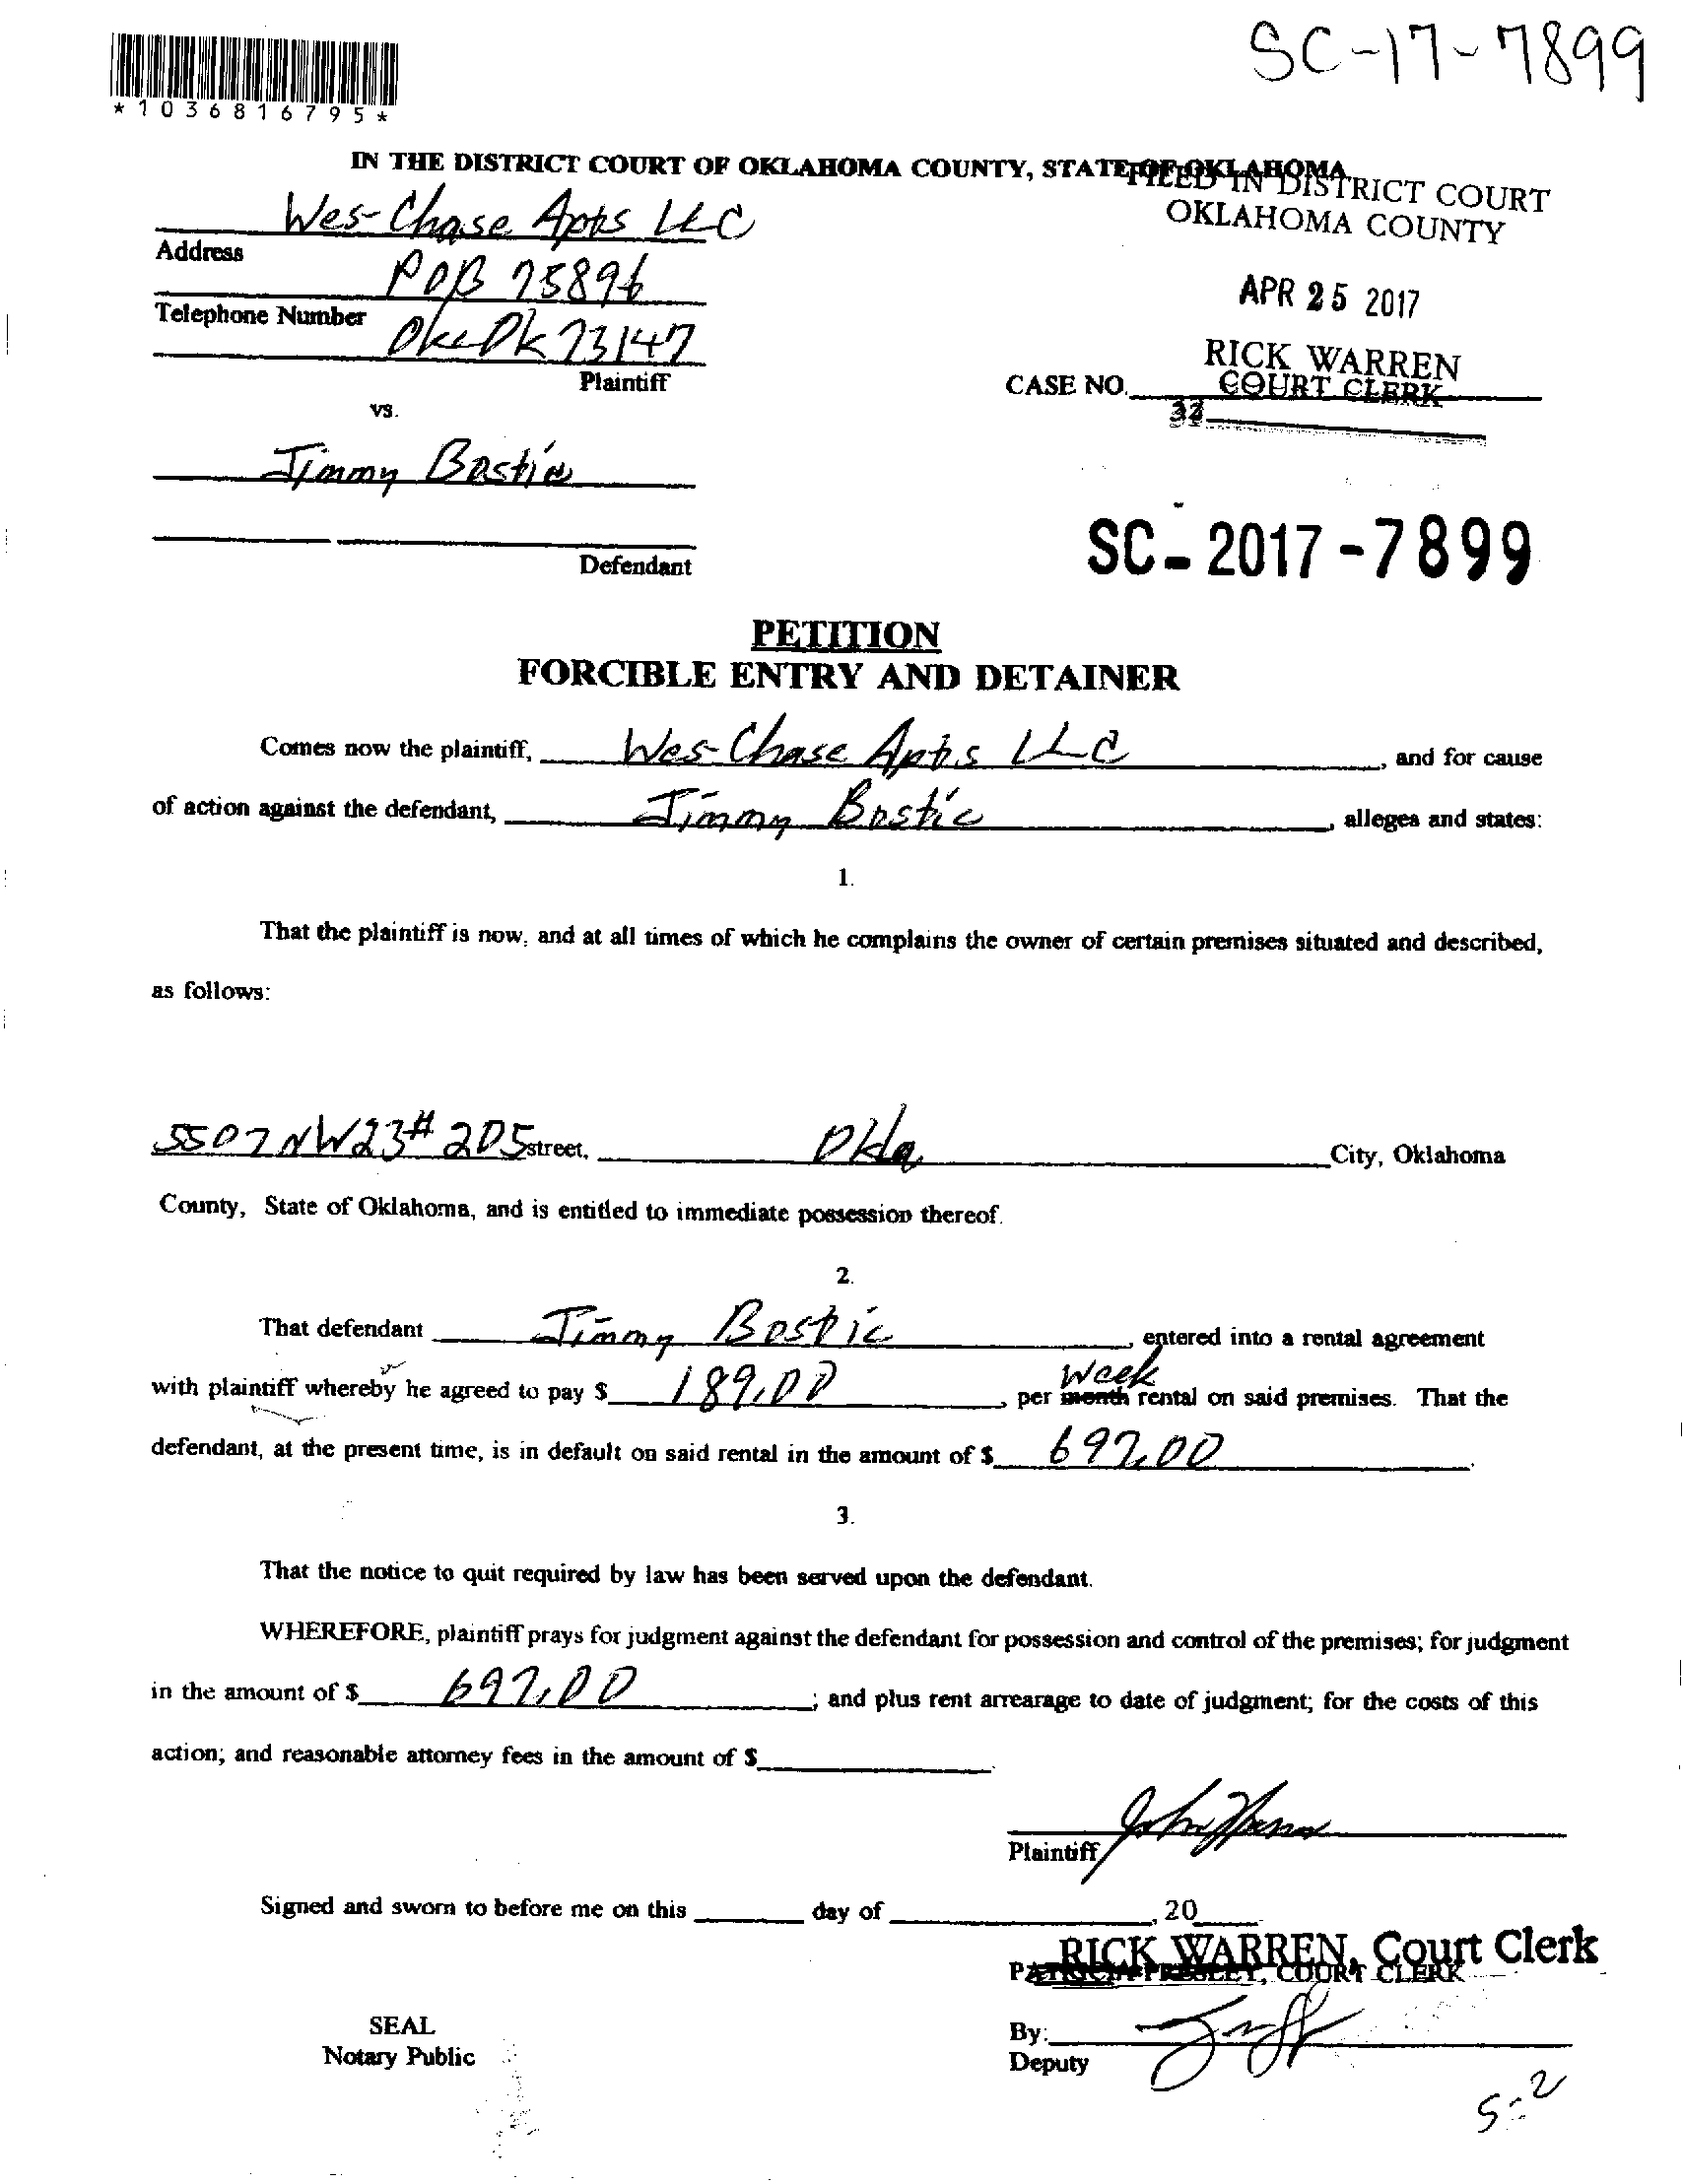 SC-17-7899
*1036816795*
IN THE DISTRICT COURT OF OKLAHOMA COUNTY, STATE OF OKLAHOMA
FILED IN DISTRICT COURT
OKLAHOMA COUNTY
Wes-Chase Apts LLC
Address
POB 75896
APR 25 2017
Telephone Number
Okc Ok 73147
RICK WARREN
COURT CLERK
Plaintiff
CASE NO.
vs.
Jimmy Bostic
SC-2017-7899
Defendant
PETITION
FORCIBLE ENTRY AND DETAINER
Comes now the plaintiff, Wes-Chase Apts LLC, and for cause
of action against the defendant, Jimmy Bostic, alleges and states:
1.
That the plaintiff is now, and at all times of which he complains the owner of certain premises situated and described,
as follows:
5507 NW 23 # 205 street, Okla City, Oklahoma
County, State of Oklahoma, and is entitled to immediate possession thereof.
2.
That defendant Jimmy Bostic, entered into a rental agreement
with plaintiff whereby he agreed to pay $ 189.00, per month Week rental on said premises. That the
defendant, at the present time, is in default on said rental in the amount of $ 697.00.
3.
That the notice to quit required by law has been served upon the defendant.
WHEREFORE, plaintiff prays for judgment against the defendant for possession and control of the premises; for judgment
in the amount of $ 697.00; and plus rent arrearage to date of judgment; for the costs of this
action; and reasonable attorney fees in the amount of $
Plaintiff
Signed and sworn to before me on this day of, 20
RICK WARREN, Court Clerk
PATRICIA PRESLEY, COURT CLERK
SEAL
By:
Notary Public
Deputy
5-2